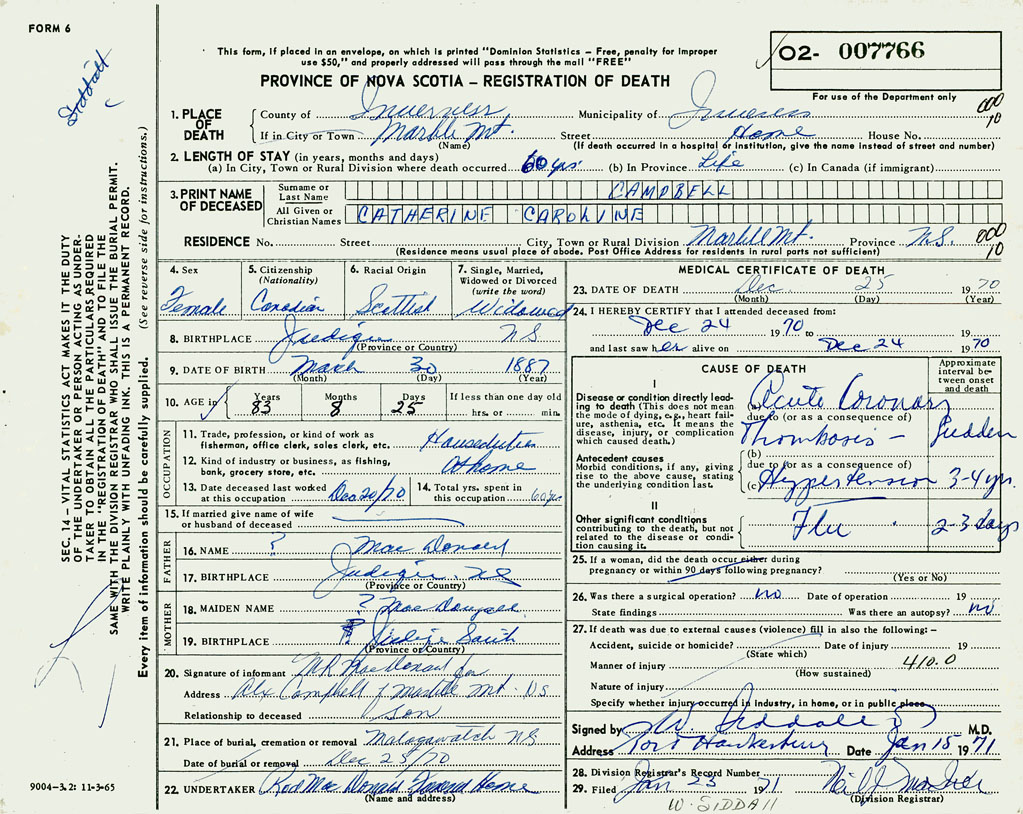 FORM 6
Siddall
This form, if placed in an envelope, on which is printed "Dominion Statistics – Free, penalty for improper
use $50," and properly addressed will pass through the mail "FREE"
PROVINCE OF NOVA SCOTIA – REGISTRATION OF DEATH
02- 007766
For use of the Department only
SEC. 14 – VITAL STATISTICS ACT MAKES IT THE DUTY
OF THE UNDERTAKER OR PERSON ACTING AS UNDER-
TAKER TO OBTAIN ALL THE PARTICULARS REQUIRED
IN THE "REGISTRATION OF DEATH" AND TO FILE THE
SAME WITH THE DIVISION REGISTRAR WHO SHALL ISSUE THE BURIAL PERMIT.
WRITE PLAINLY WITH UNFADING INK. THIS IS A PERMANENT RECORD.
Every item of information should be carefully supplied. (See reverse side for instructions.)
1. PLACE OF DEATH
County of Inverness Municipality of Inverness
000
10
If in City or Town Marble Mt. Street Home House No.
(Name) (If death occurred in a hospital or institution, give the name instead of street and number)
2. LENGTH OF STAY (in years, months and days)
(a) In City, Town or Rural Division where death occurred 60 yrs (b) In Province Life (c) In Canada (if immigrant)
3. PRINT NAME OF DECEASED
Surname or Last Name CAMPBELL
All Given or Christian Names CATHERINE CAROLINE
RESIDENCE No. Street City, Town or Rural Division Marble Mt. Province N.S. 000
10
(Residence means usual place of abode. Post Office Address for residents in rural parts not sufficient)
4. Sex Female
5. Citizenship (Nationality) Canadian
6. Racial Origin Scottish
7. Single, Married, Widowed or Divorced (write the word) Widowed
8. BIRTHPLACE Judique NS
(Province or Country)
9. DATE OF BIRTH March 30 1887
(Month) (Day) (Year)
10. AGE in Years 83 Months 8 Days 25 If less than one day old hrs. or min.
OCCUPATION
11. Trade, profession, or kind of work as
fisherman, office clerk, sales clerk, etc. Houseduties
12. Kind of industry or business, as fishing,
bank, grocery store, etc. At home
13. Date deceased last worked
at this occupation Dec 20/70
14. Total yrs. spent in
this occupation 60 yrs
15. If married give name of wife
or husband of deceased
FATHER
16. NAME ? Mac Donald
17. BIRTHPLACE Judique NS
(Province or Country)
MOTHER
18. MAIDEN NAME ? MacDougall
19. BIRTHPLACE Judique South
(Province or Country)
20. Signature of informant MacDonald for
Address Alx Campbell Marble Mt. NS
Relationship to deceased son
21. Place of burial, cremation or removal Malagawatch NS
Date of burial or removal Dec 25/70
22. UNDERTAKER Rod Mac Donald Funeral Home
(Name and address)
9004-3.2: 11-3-65
MEDICAL CERTIFICATE OF DEATH
23. DATE OF DEATH Dec 25 1970
(Month) (Day) (Year)
24. I HEREBY CERTIFY that I attended deceased from:
Dec 24 1970 to 19
and last saw her alive on Dec 24 1970
CAUSE OF DEATH
Approximate interval between onset and death
I
Disease or condition directly lead-
ing to death (This does not mean
the mode of dying, e.g., heart fail-
ure, asthenia, etc. It means the
disease, injury, or complication
which caused death.)
(a) Acute Coronary
due to (or as a consequence of)
Thombosis – Sudden
Antecedent causes
Morbid conditions, if any, giving
rise to the above cause, stating
the underlying condition last.
(b)
due to (or as a consequence of)
(c) Hyppertension 3-4 yrs.
II
Other significant conditions
contributing to the death, but not
related to the disease or condi-
tion causing it.
Flu 2-3 days
25. If a woman, did the death occur either during
pregnancy or within 90 days following pregnancy?
(Yes or No)
26. Was there a surgical operation? no Date of operation 19
State findings Was there an autopsy? no
27. If death was due to external causes (violence) fill in also the following: –
Accident, suicide or homicide? Date of injury 19
(State which)
Manner of injury 410.0
(How sustained)
Nature of injury
Specify whether injury occurred in industry, in home, or in public place
Signed by W Siddall M.D.
Address Port Hawkesbury Date Jan 15 1971
28. Division Registrar's Record Number
29. Filed Jan 23 1971 Neil J
(Division Registrar)
W. SIDDALL